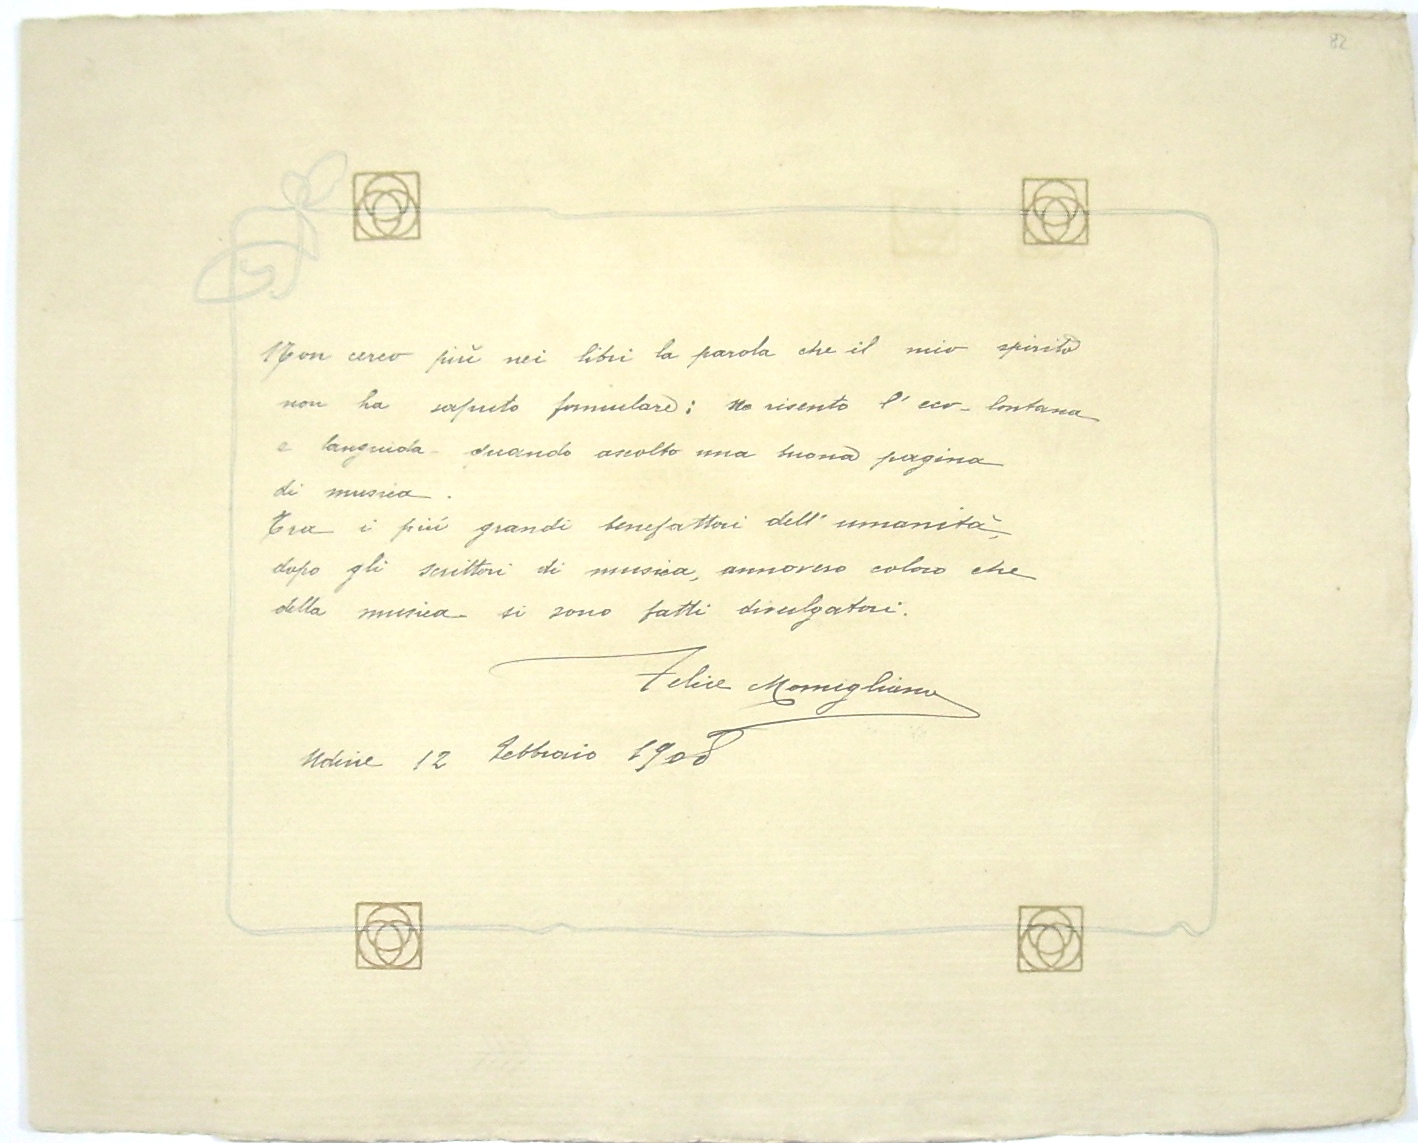 82
Non cerco più nei libri la parola che il mio spirito
non ha saputo formulare; ne risento l'eco lontana
e languida quando ascolto una buona pagina
di musica.
Tra i più grandi benefattori dell'umanità,
dopo gli scrittori di musica, annovero coloro che
della musica si sono fatti divulgatori.
Felice Momigliano
Udine 12 Febbraio 1908